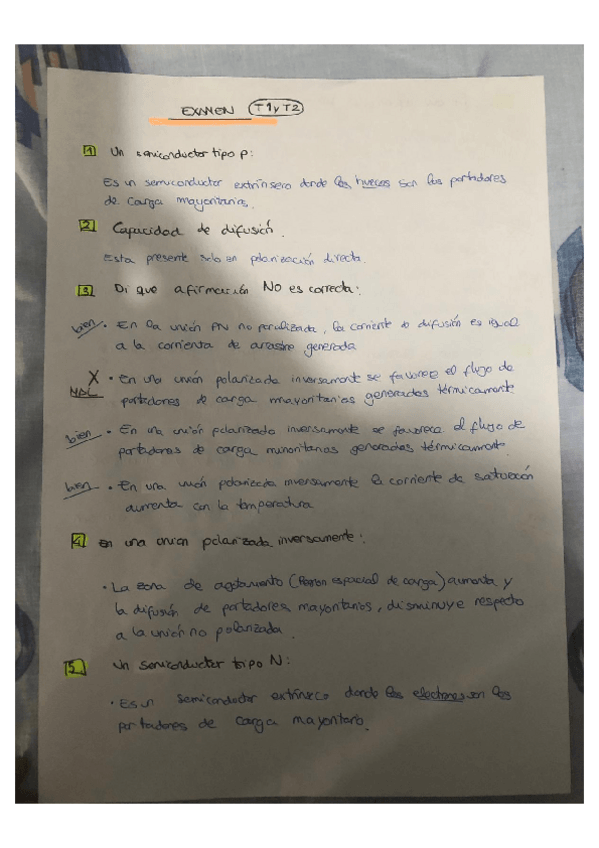 EXAMEN T1 y T2
1 Un semiconductor tipo p:
Es un semiconductor extrínseco donde los huecos son los portadores
de carga mayoritarios.
2 Capacidad de difusión.
Esta presente solo en polarización directa.
3 Di que afirmación NO es correcta:
bien · En la unión PN no polarizada, la corriente de difusión es igual
a la corriente de arrastre generada
X · En una unión polarizada inversamente se favorece el flujo de
MAL portadores de carga mayoritarios generados térmicamente
bien · En una unión polarizada inversamente se favorece el flujo de
portadores de carga minoritarios generados térmicamente.
bien · En una unión polarizada inversamente la corriente de saturación
aumenta con la temperatura
4 En una union polarizada inversamente:
· La zona de agotamiento (Region espacial de carga) aumenta y
la difusión de portadores mayoritarios, disminuye respecto
a la unión no polarizada.
5. Un semiconductor tipo N:
· Es un semiconductor extrínseco donde los electrones son los
portadores de carga mayoritario.